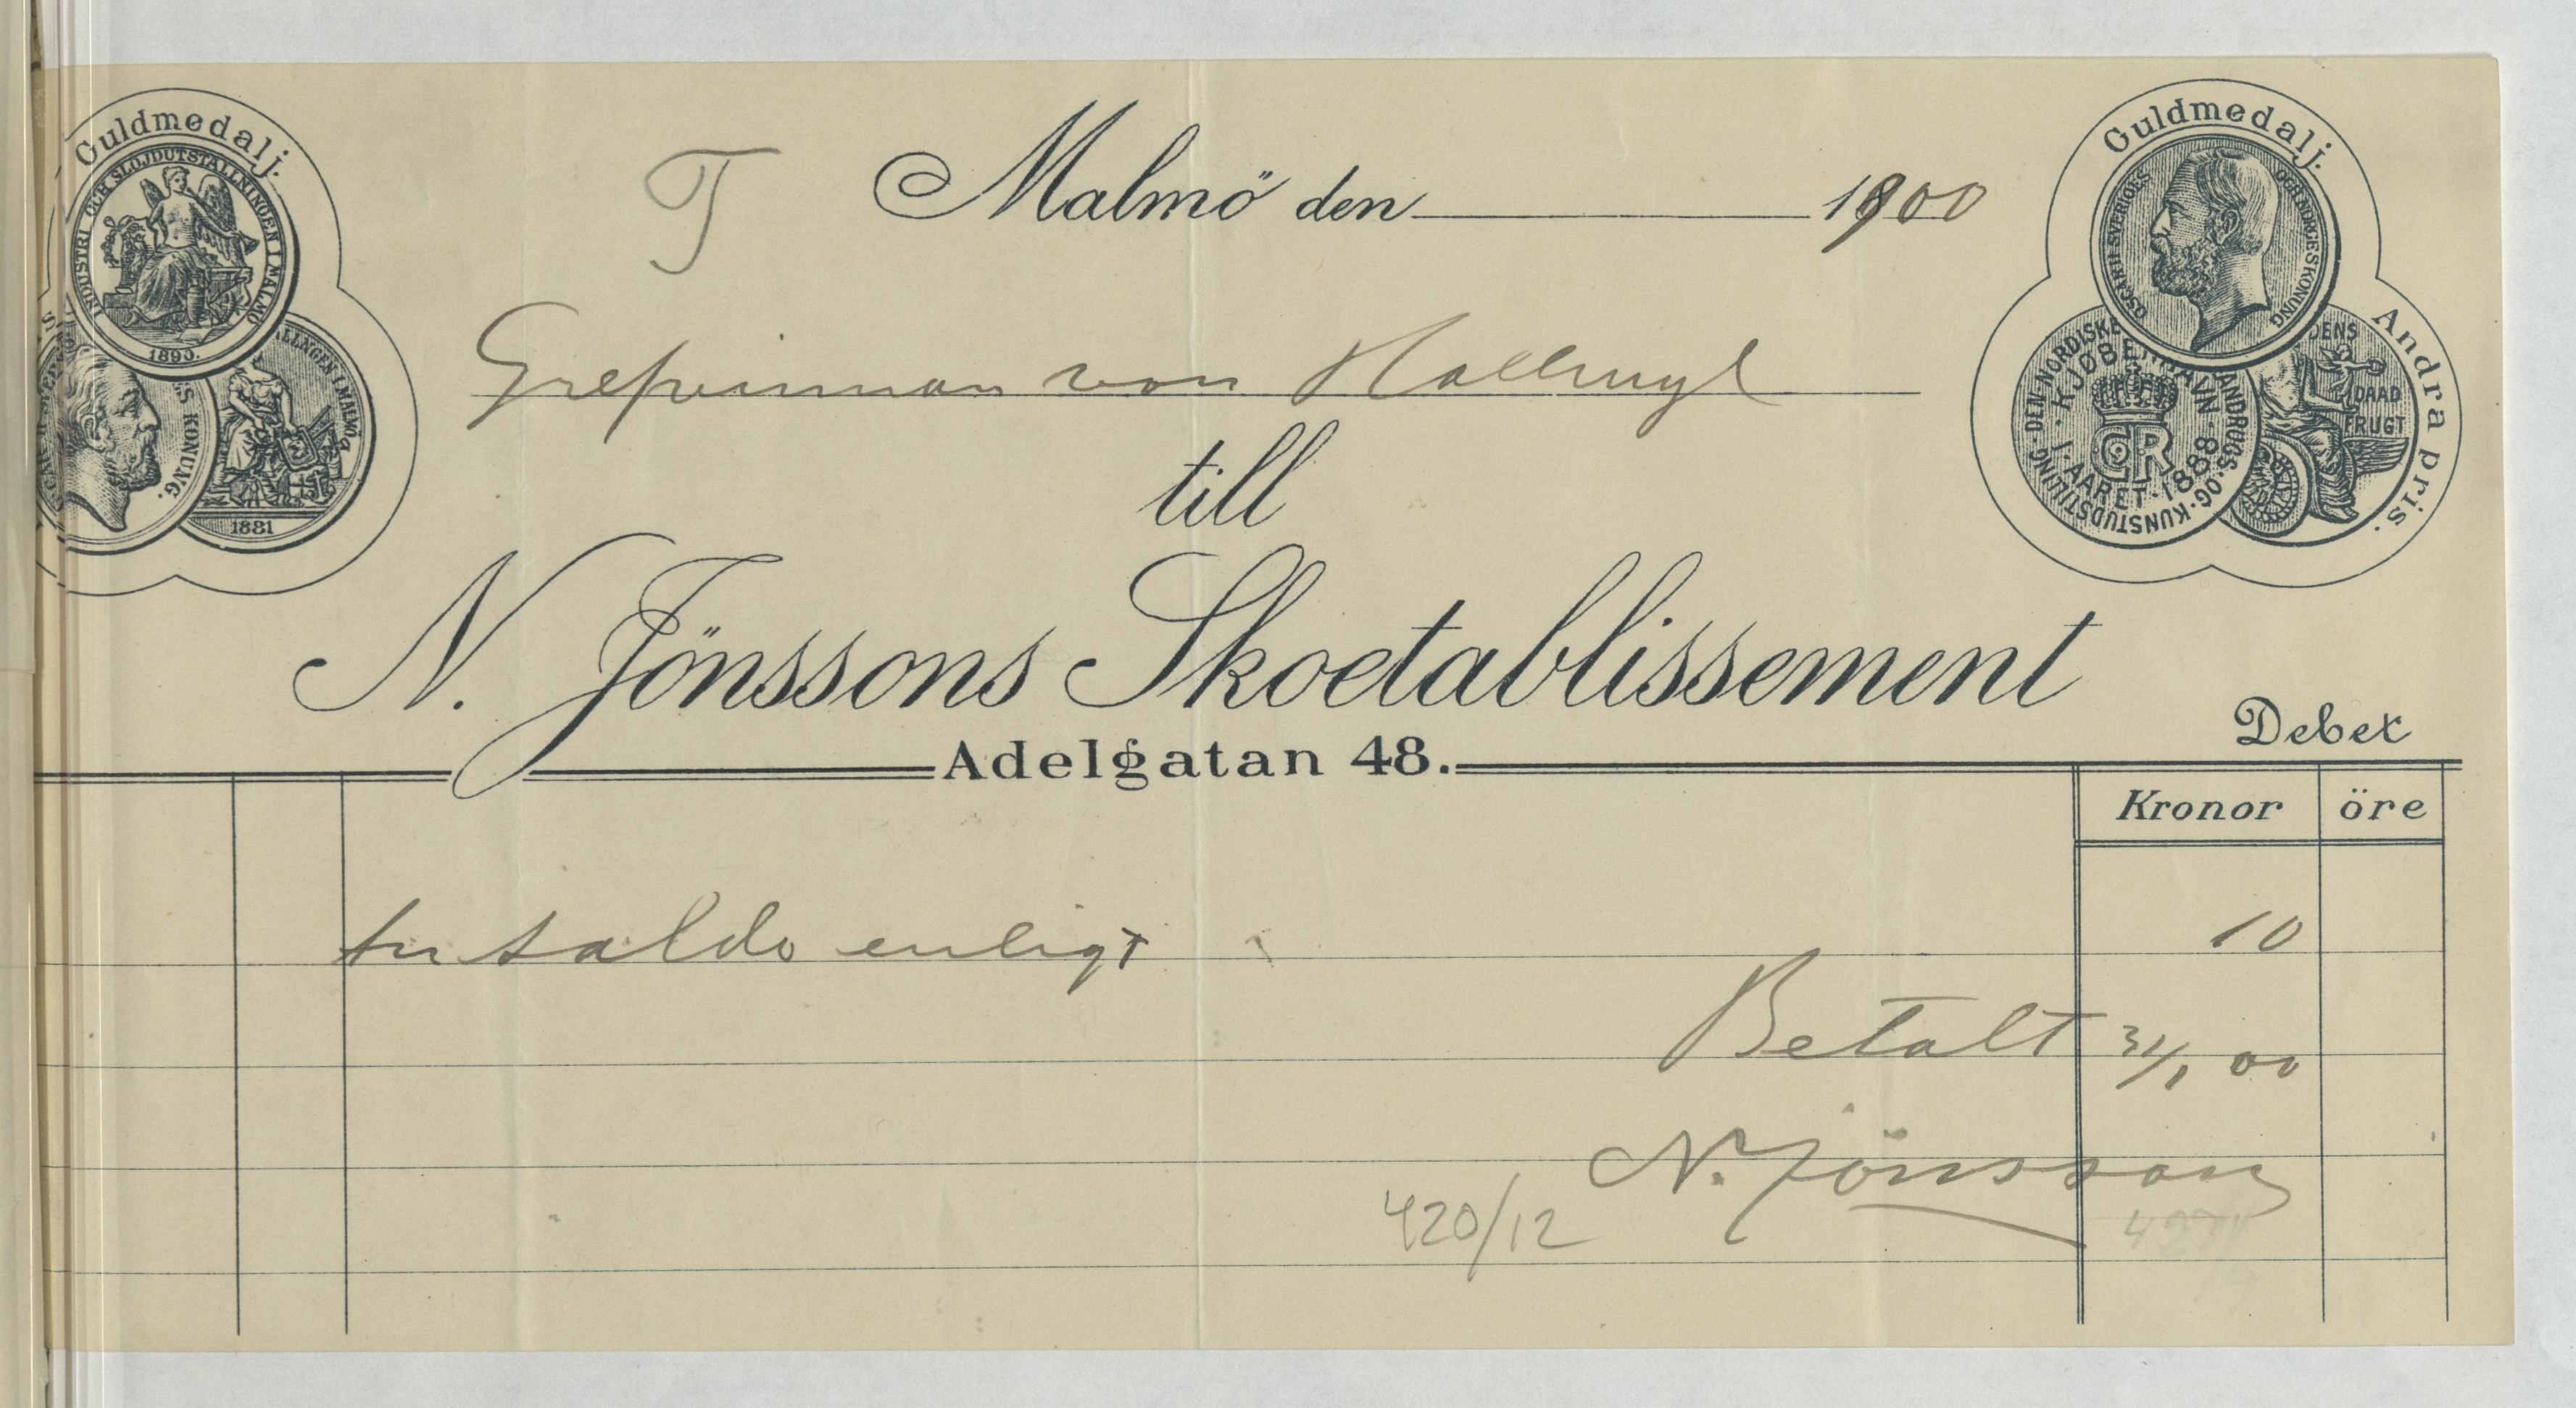 Guldmedalj.
INDUSTRI OCH SLÖJDUTSTÄLLNINGEN I MALMÖ
1890.
S KONUNG.
ÄLLNGEN I MALMÖ
1881
T
Malmö den 1900
Guldmedalj.
OSCAR II SVERIGES OCH NORGES KONUNG
Andra pris.
DEN NORDISKE
LANDBRUGS-OG-KUNSTUDSTILLING
KJØBENHAVN
CR
I AARET 1888
DAAD
FRUGT
Grefvinnan von Hallwyl
till
N. Jönssons Skoetablissement
Adelgatan 48.
Debet
Kronor öre
An saldo enligt 10
Betalt 31/1 00
N. Jönsson
420/12